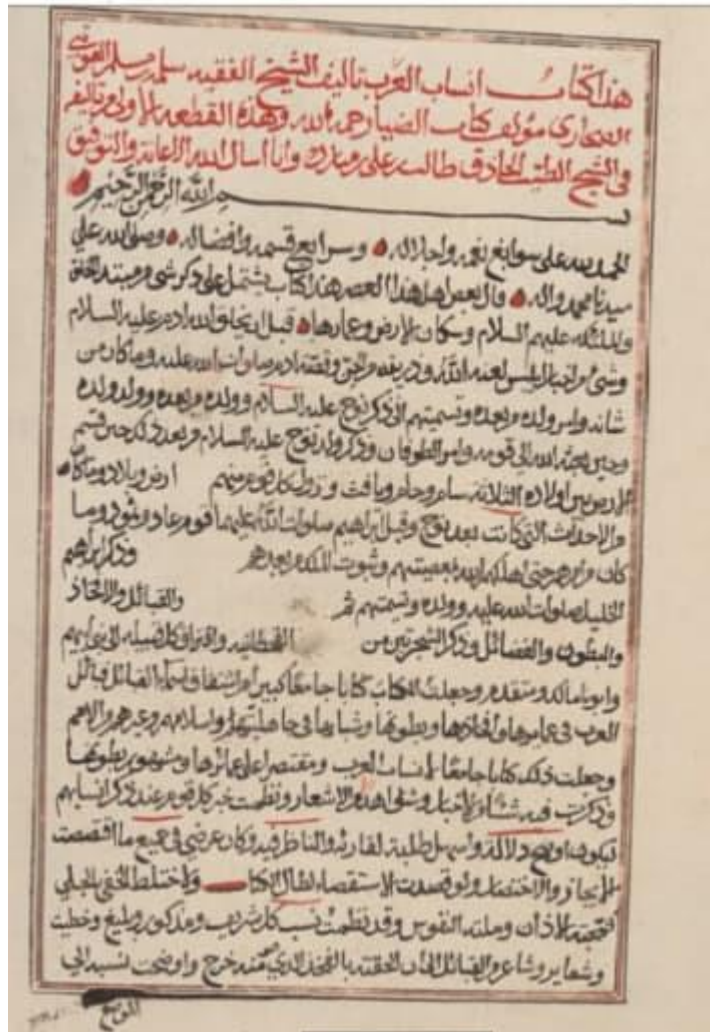 هذا كتاب انساب العرب تاليف الشيخ الفقيه سلمه بن مسلم العوتبي
الصحاري مؤلف كتاب الضيا رحمه الله وهذه القطعه الاولى تاليف
الشيخ الحاذق طالب علي وانا اسال الله الاعانة والتوفيق
بسم الله الرحمن الرحيم
الحمد لله على سوابغ نعمه واجلاله وسرابغ قسمه وافضاله وصلى الله على
سيدنا محمد واله قال بعض اهل هذا العصر هذا كتاب يشتمل على ذكر شي من مبتدا الخلق
والملئكه عليهم السلام وسكان الارض وعمارها قبل ان يخلق الله ادم عليه السلام
وشي من اخبار ابليس لعنه الله وذريته من الجن وقصة ادم صلوات الله عليه وما كان من
شانه وامر ولده من بعده وتسميتهم الى ذكر نوح عليه السلام وولده من بعده وولد ولده
وحين بعثه الله الى قومه وامر الطوفان وذكر ولد نوح عليه السلام وبعد ذلك حين قسم
الارض بين اولاده الثلاثه سام وحام ويافث ونزول كل قوم منهم ارض وبلاد وما كان
والاحداث التي كانت بعد نوح وقبل ابراهيم صلوات الله عليهما قوم عاد وثمود وما
كان من امرهم حتى اهلكهم الله بمعصيتهم وثبوت الملك من بعدهم وذكر ابراهيم
الخليل صلوات الله عليه وولده وتسميتهم ثم والقبائل والافخاذ
والبطون والفصائل وذكر الشجرتين من القحطانيه وافتراق كل قبيله الى بني ابيهم
وجعلت الكتاب كتابا جامعا كبيرا من اسماء القبائل قبائل
العرب في عمائرها وافخاذها وبطونها وشانها في جاهليتها واسلامهم وغيرهم والاعم
وجعلت ذلك كتابا جامعا لانساب العرب ومقتصرا على عمائرها ومشهور بطونها
وذكرت فيه من الاخبار وشواهد الاشعار ونظمت خبر كل قوم عند ذكر انسابهم
ليكون اوضح دلالة واسهل طلبة لقارئه والناظر فيه وكان غرضي في جميع ما اقتصصت
الايجاز والاختصار ولو قصدت الاستقصاء لطال الكتاب واختلط الخفي بالجلي
الاذان وملته النفوس وقد نظمت نسب كل شريف ومذكور وبليغ وخطيب
وشاعر والقبائل الى ان الحقته بالفخذ الذي منه خرج واوضحت نسبه الى